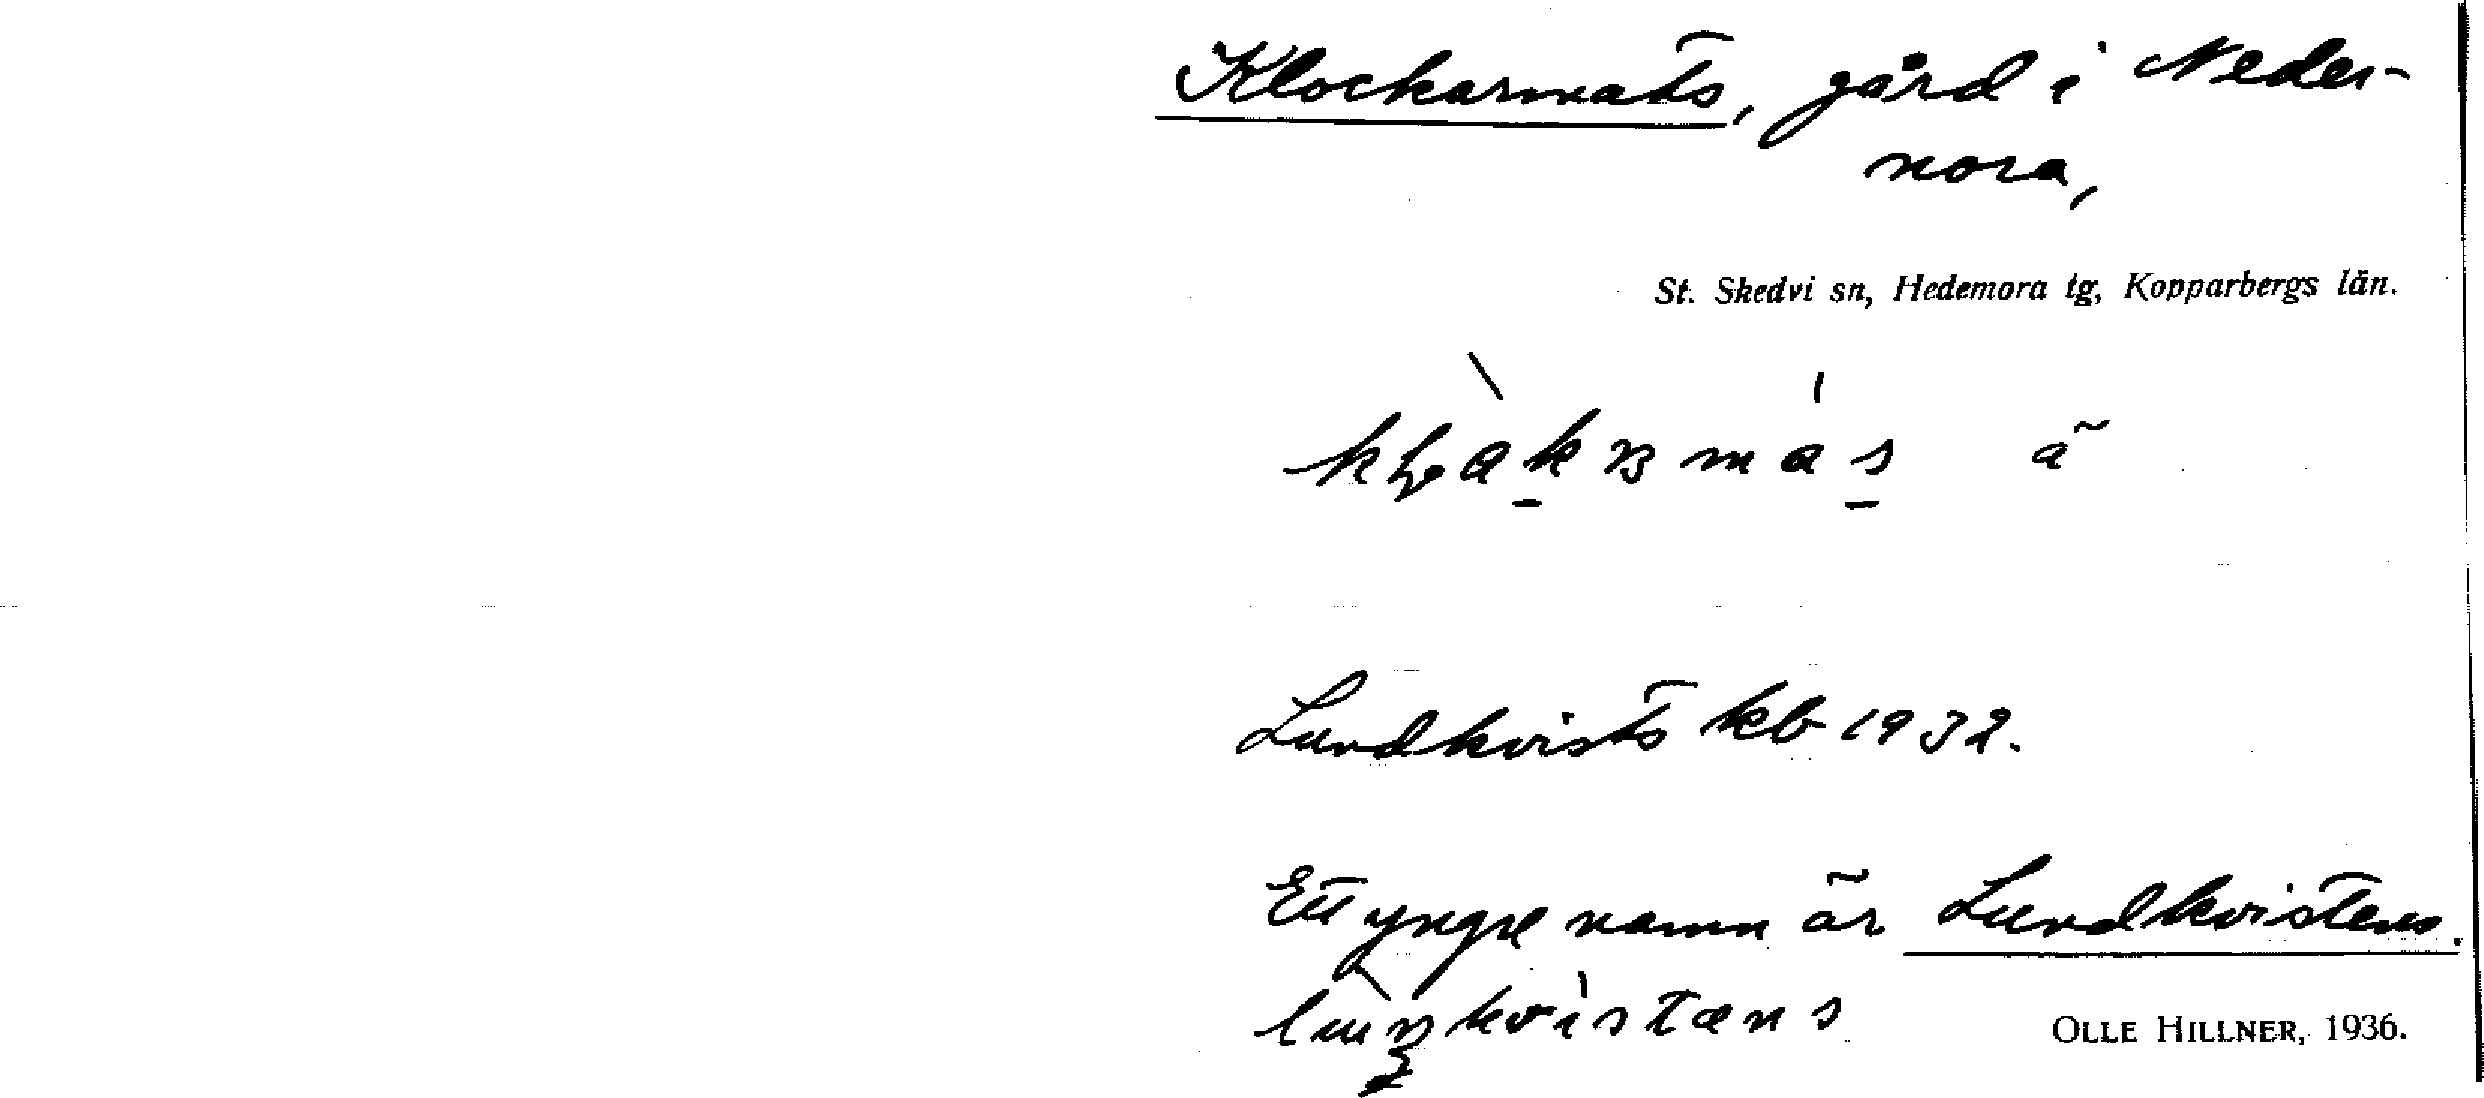 Klockarmats, gård i Neder-
nora,
St. Skedvi sn, Hedemora tg, Kopparbergs län.
Lundkvists kb 1932.
Ett yngre namn är Lundkvistens.
OLLE HILLNER, 1936.